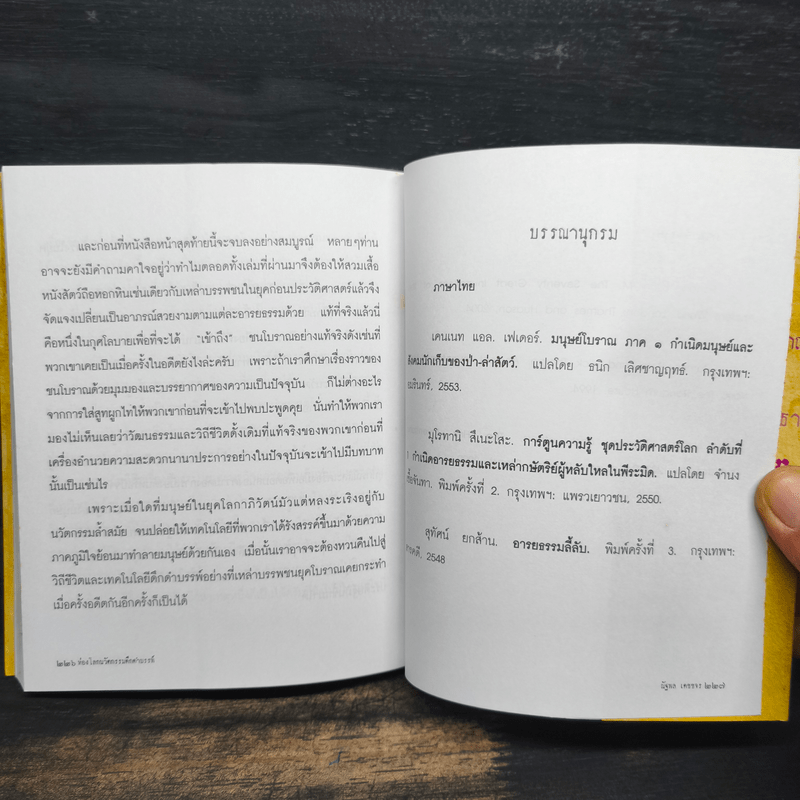 และก่อนที่หนังสือหน้าสุดท้ายนี้จะจบลงอย่างสมบูรณ์ หลายๆท่าน
อาจจะยังมีคำถามคาใจอยู่ว่าทำไมตลอดทั้งเล่มที่ผ่านมาจึงต้องให้สวมเสื้อ
หนังสัตว์ถือหอกหินเช่นเดียวกับเหล่าบรรพชนในยุคก่อนประวัติศาสตร์แล้วจึง
จัดแจงเปลี่ยนเป็นอาภรณ์สวยงามตามแต่ละอารยธรรมด้วย แท้ที่จริงแล้วนี่
คือหนึ่งในกุศโลบายเพื่อที่จะได้ "เข้าถึง" ชนโบราณอย่างแท้จริงดังเช่นที่
พวกเขาเคยเป็นเมื่อครั้งในอดีตยังไงล่ะครับ เพราะถ้าเราศึกษาเรื่องราวของ
ชนโบราณด้วยมุมมองและบรรยากาศของความเป็นปัจจุบัน ก็ไม่ต่างอะไร
จากการใส่สูทผูกไทให้พวกเขาก่อนที่จะเข้าไปพบปะพูดคุย นั่นทำให้พวกเรา
มองไม่เห็นเลยว่าวัฒนธรรมและวิถีชีวิตดั้งเดิมที่แท้จริงของพวกเขาก่อนที่
เครื่องอำนวยความสะดวกนานาประการอย่างในปัจจุบันจะเข้าไปมีบทบาท
นั้นเป็นเช่นไร
เพราะเมื่อใดที่มนุษย์ในยุคโลกาภิวัตน์มัวแต่หลงระเริงอยู่กับ
นวัตกรรมล้ำสมัย จนปล่อยให้เทคโนโลยีที่พวกเราได้รังสรรค์ขึ้นมาด้วยความ
ภาคภูมิใจย้อนมาทำลายมนุษย์ด้วยกันเอง เมื่อนั้นเราอาจจะต้องหวนคืนไปสู่
วิถีชีวิตและเทคโนโลยีดึกดำบรรพ์อย่างที่เหล่าบรรพชนยุคโบราณเคยกระทำ
เมื่อครั้งอดีตกันอีกครั้งก็เป็นได้
๒๒๖ ท่องโลกนวัตกรรมดึกดำบรรพ์
บรรณานุกรม
ภาษาไทย
เคนเนท แอล. เฟเดอร์. มนุษย์โบราณ ภาค ๑ กำเนิดมนุษย์และ
สังคมนักเก็บของป่า-ล่าสัตว์. แปลโดย ธนิก เลิศชาญฤทธ์. กรุงเทพฯ:
2553.
มุโรทานิ สึเนะโสะ. การ์ตูนความรู้ ชุดประวัติศาสตร์โลก ลำดับที่
กำเนิดอารยธรรมและเหล่ากษัตริย์ผู้หลับใหลในพีระมิด. แปลโดย จำนง
พิมพ์ครั้งที่ 2. กรุงเทพฯ: แพรวเยาวชน, 2550.
สุทัศน์ ยกส้าน. อารยธรรมลี้ลับ. พิมพ์ครั้งที่ 3. กรุงเทพฯ:
2548
ณัฐพล เดชขจร ๒๒๗